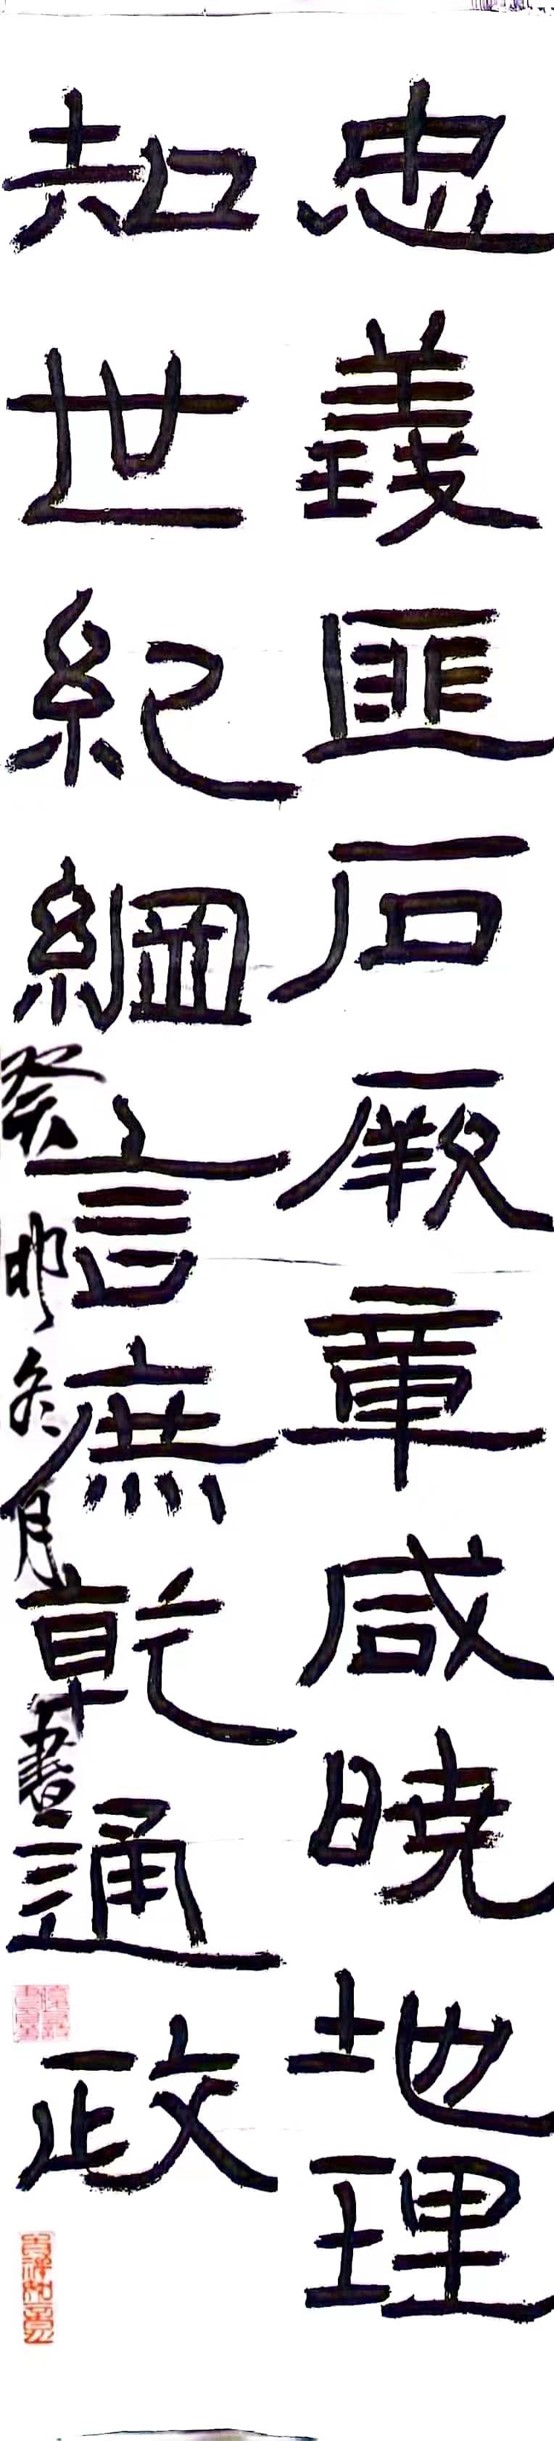 忠義匪石厥章咸曉地理
知世紀綱言庶乾通政
癸卯冬月
書